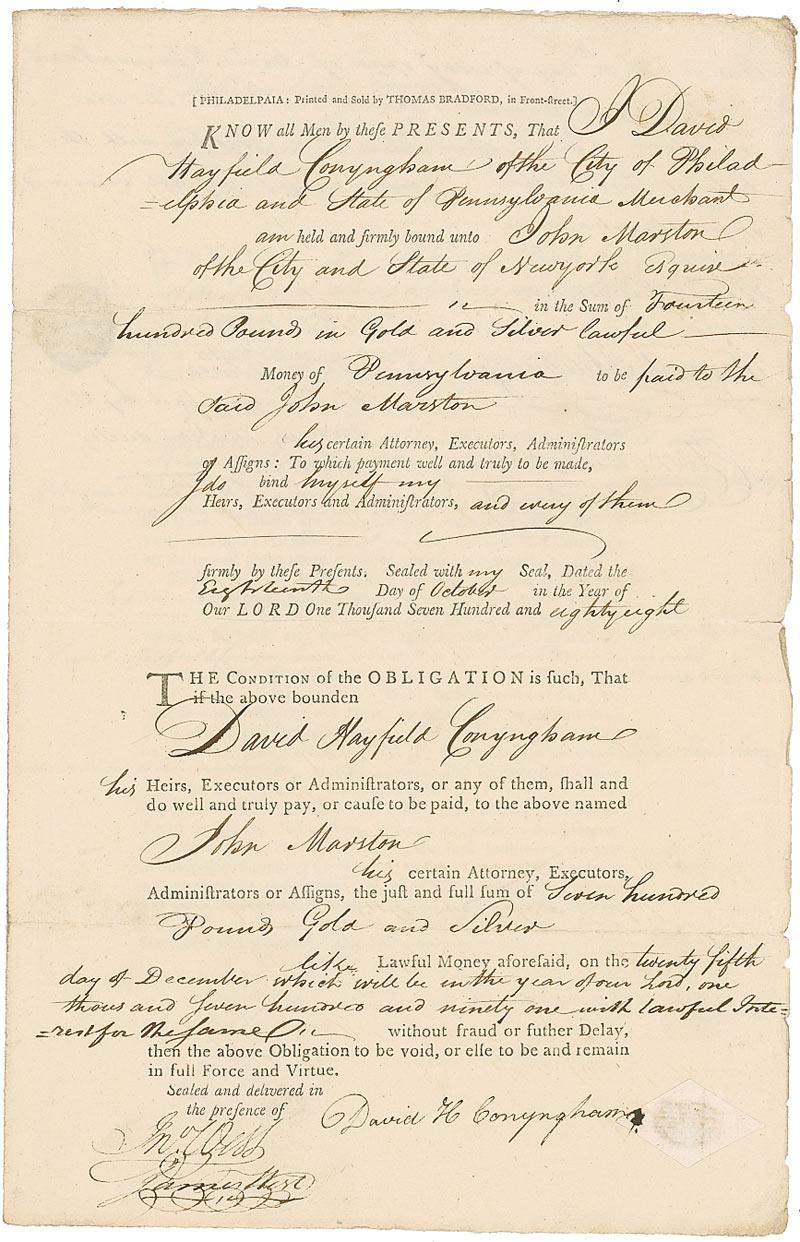 [ PHILADELPAIA: Printed and Sold by THOMAS BRADFORD, in Front-ſtreet.]
KNOW all Men by theſe PRESENTS, That I David
Hayfield Conyngham of the City of Philad-
=elphia and State of Pennsylvania Merchant
am held and firmly bound unto John Marston
of the City and State of Newyork Esquire
in the Sum of Fourteen
hundred Pounds in Gold and Silver lawful
Money of Pennsylvania to be paid to the
said John Marston
his certain Attorney, Executors, Adminiſtrators
or Aſſigns: To which payment well and truly to be made,
I do bind myself my
Heirs, Executors and Adminiſtrators, and every of them
firmly by theſe Preſents. Sealed with my Seal, Dated the
Eighteenth Day of October in the Year of
Our LORD One Thouſand Seven Hundred and eighty eight
THE CONDITION of the OBLIGATION is ſuch, That
if the above bounden
David Hayfield Conyngham
his Heirs, Executors or Adminiſtrators, or any of them, ſhall and
do well and truly pay, or cauſe to be paid, to the above named
John Marston
his certain Attorney, Executors,
Adminiſtrators or Aſſigns, the juſt and full ſum of Seven hundred
Pounds Gold and Silver
like Lawful Money aforeſaid, on the twenty fifth
day of December which will be in the year of our Lord, one
thousand seven hundred and ninety one with lawful Inte=
=rest for the same without fraud or futher Delay,
then the above Obligation to be void, or elſe to be and remain
in full Force and Virtue.
Sealed and delivered in
the preſence of David H Conyngham
Jno
James West